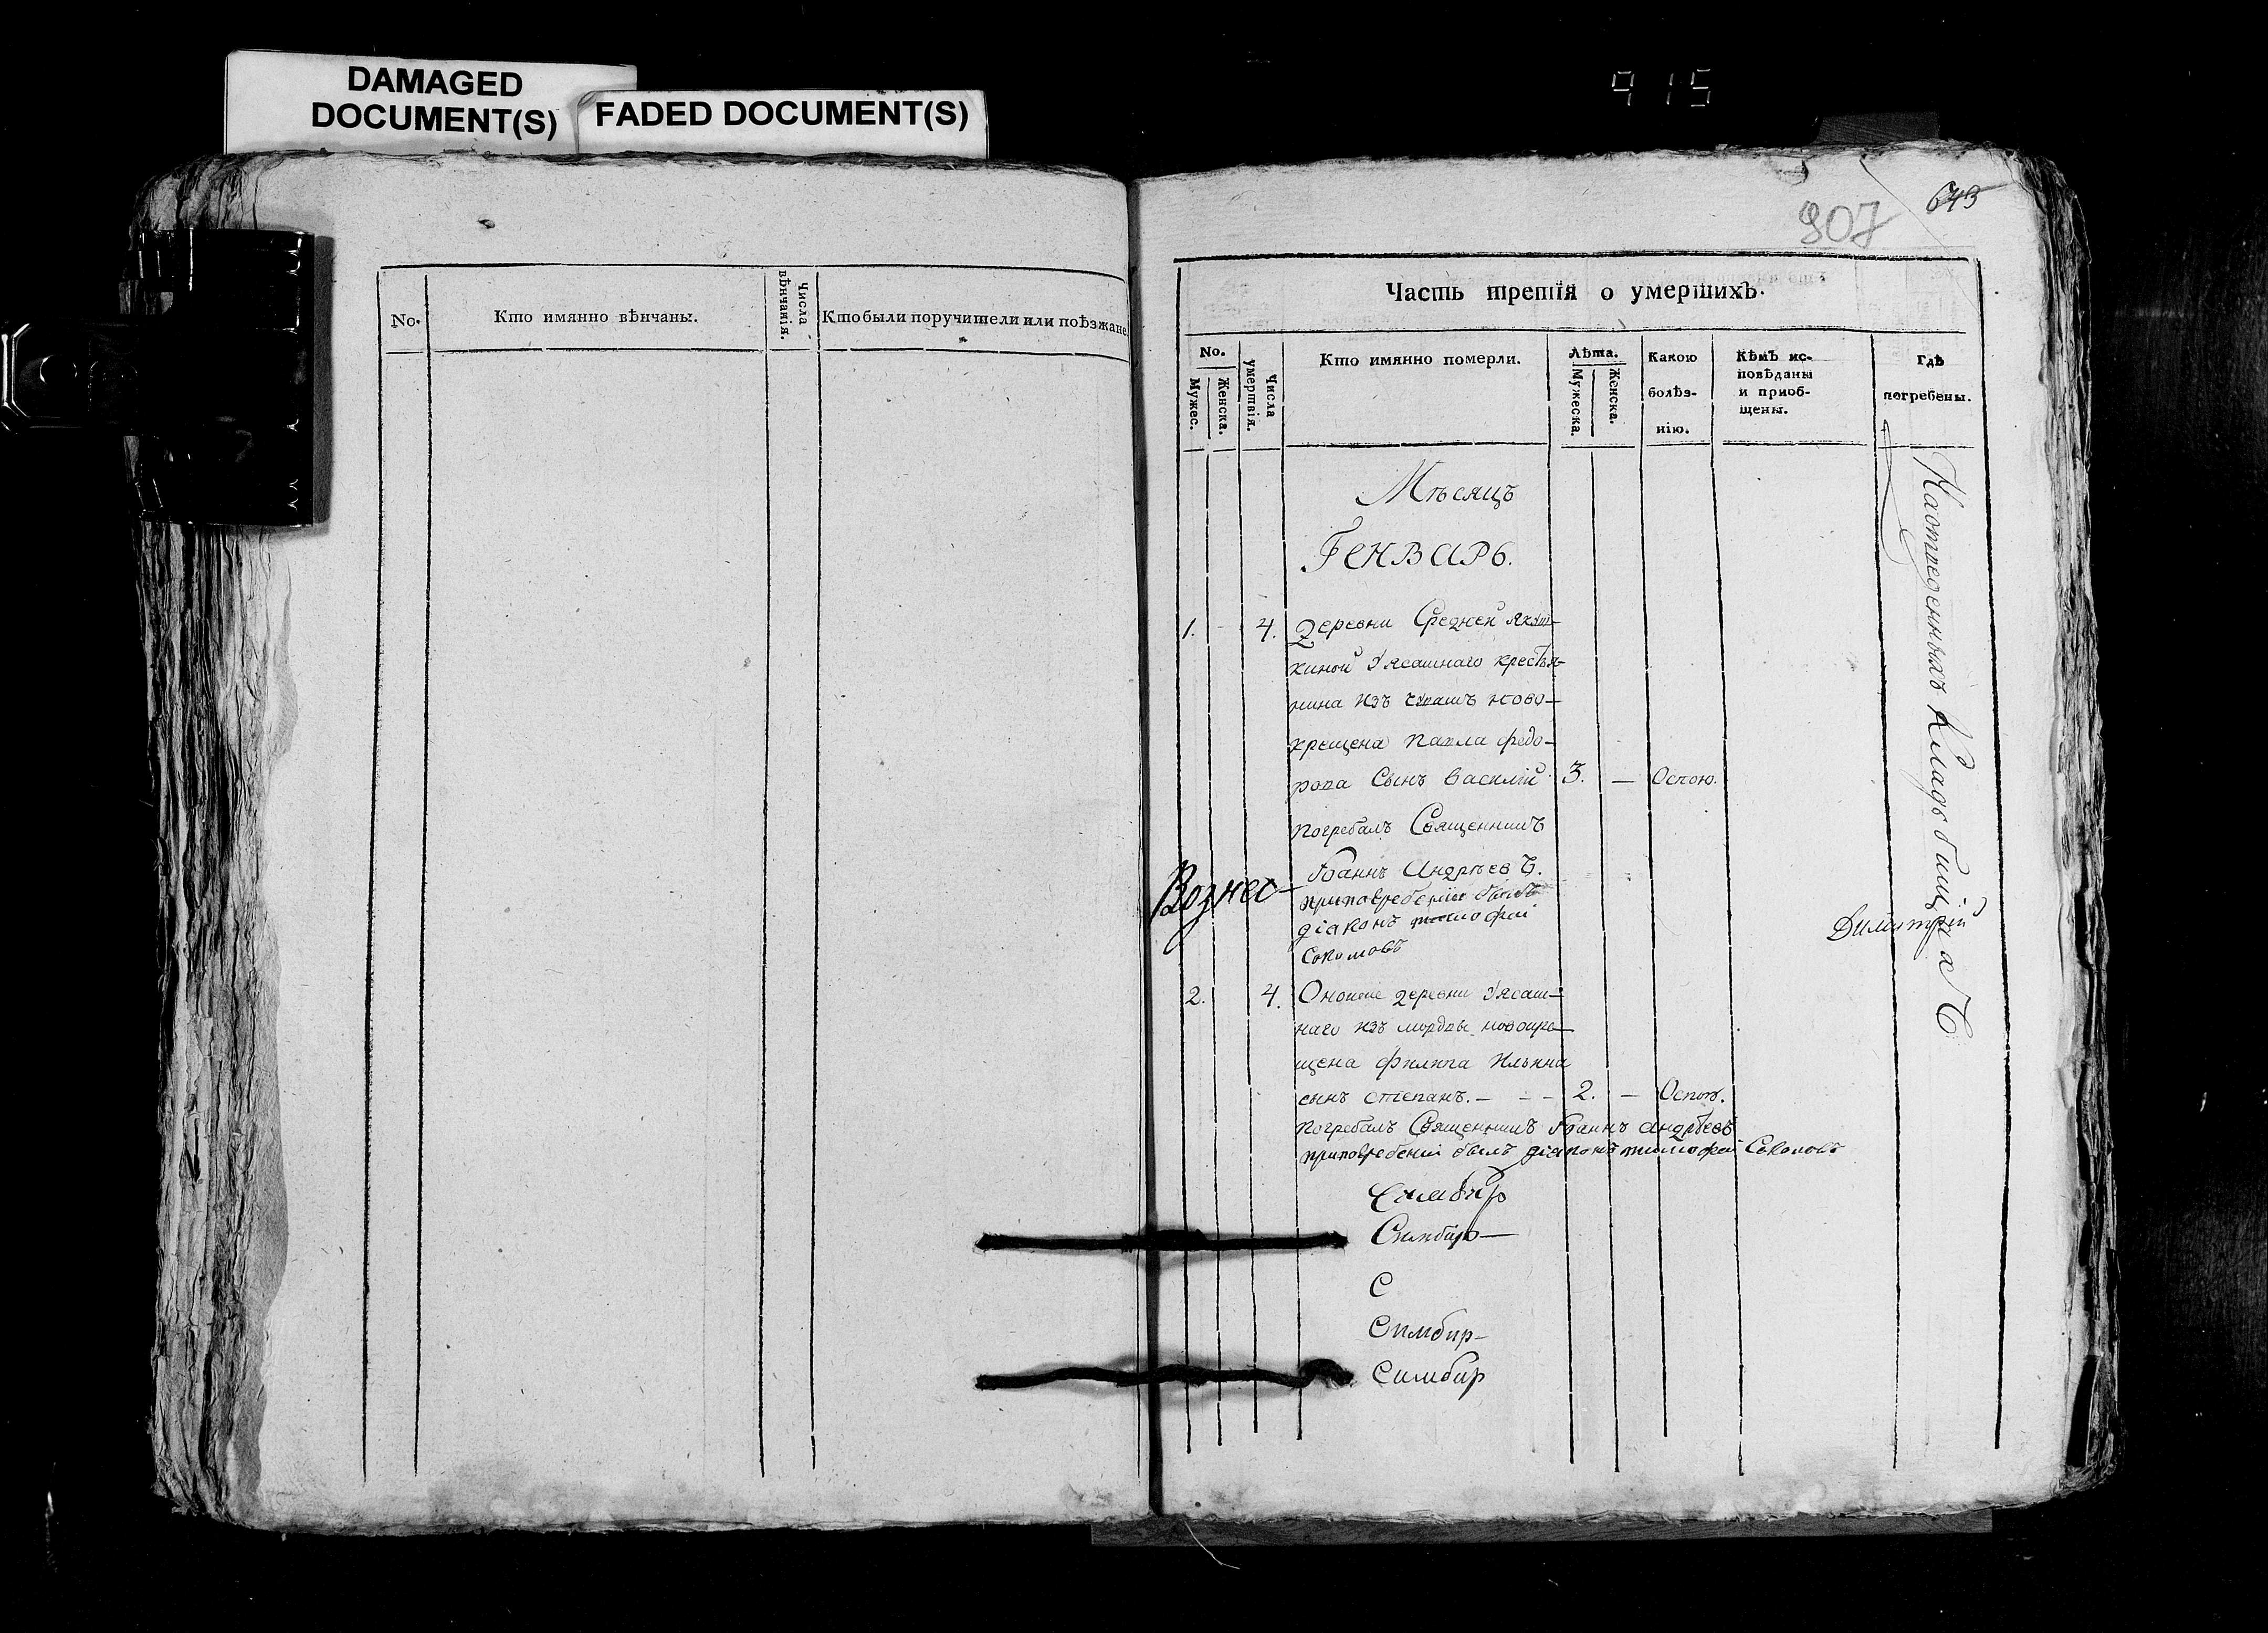 DAMAGED
DOCUMENT(S)
FADED DOCUMENT(S)
915
No.
Кто имянно вѣнчаны.
Числа
вѣнчанія.
Кто были поручители или поѣзжане.
907
643
Часть третія о умершихъ.
No.
Мужес.
Женска.
Числа
умертвія.
Кто имянно померли.
Лѣта.
Мужеска.
Женска.
Какою
болѣз-
нію.
Кѣмъ ис-
повѣданы
и приоб-
щены.
Гдѣ
погребены.
Мѣсяцъ
Генварь.
1. - 4. Деревни Средней Якуш-
киной Ясашнаго крестья-
нина изъ чувашъ ново-
крещена Павла Федо-
рова Сынъ Василій 3. — Оспою.
погребалъ Священникъ
Іоаннъ Андрѣевъ.
при погребеніи былъ
діаконъ тимофѣй
Соколовъ
Вознес-
2. 4. Оноиже деревни Ясаш-
наго изъ мордвы новокре-
щена Филипа Ильина
сынъ степанъ. - - - 2. — Оспою.
погребалъ Священникъ Іоаннъ Андрѣевъ
при погребеніи былъ діаконъ тимофѣй Соколовъ
Симбир
Симбир—
С
Симбир-
Симбир
На отведенныхъ Кладбищах
Димитрій